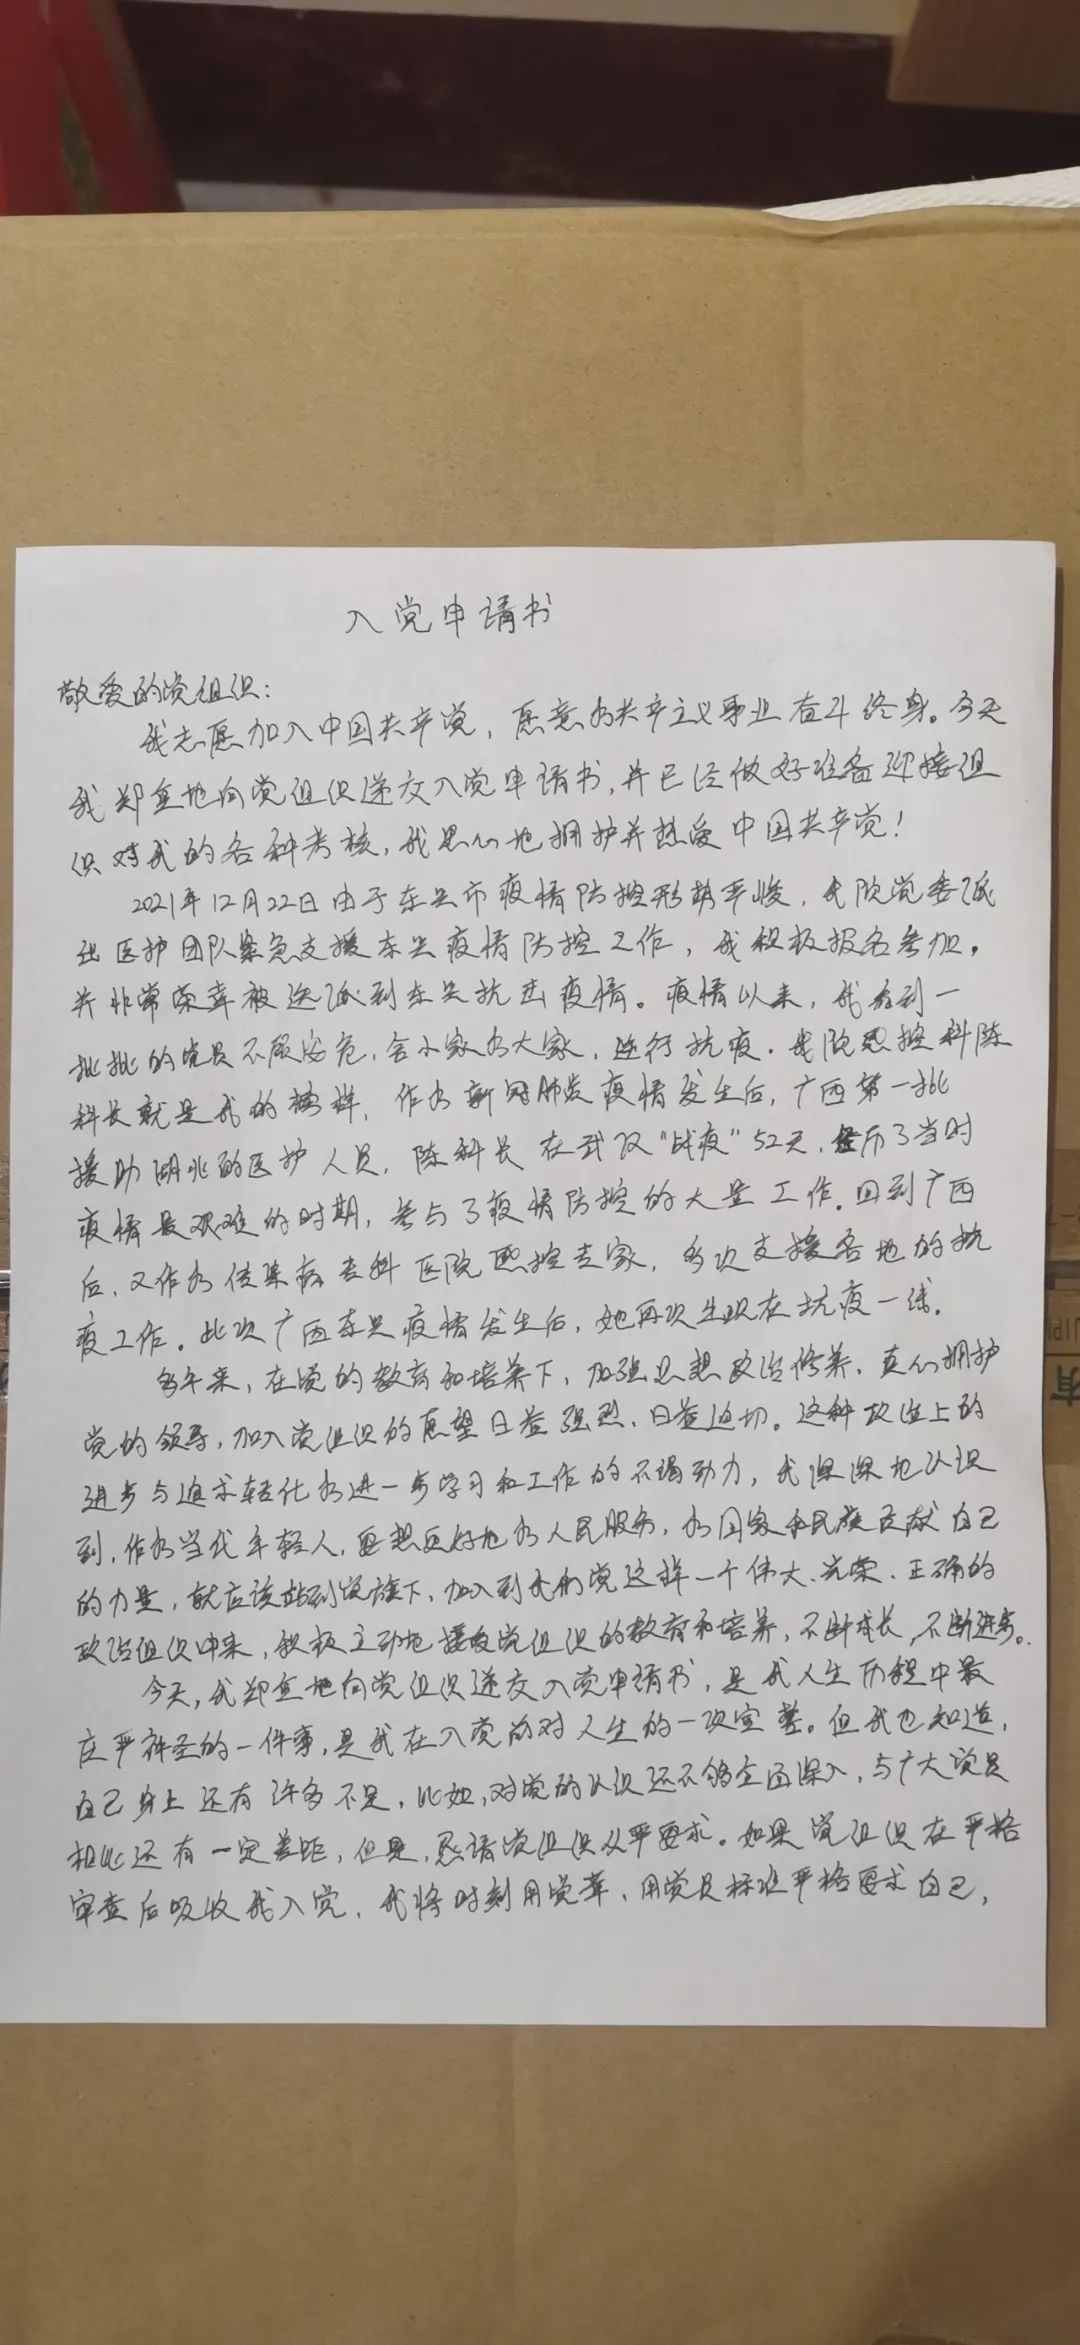 入党申请书
敬爱的党组织：
我志愿加入中国共产党，愿意为共产主义事业奋斗终身。今天
我郑重地向党组织递交入党申请书，并已经做好准备迎接组
织对我的各种考核，我忠心地拥护并热爱中国共产党！
2021年12月22日由于东兴市疫情防控形势严峻，我院党委派
出医护团队紧急支援东兴疫情防控工作，我积极报名参加。
并非常荣幸被选派到东兴抗击疫情。疫情以来，我看到一
批批的党员不顾安危，舍小家为大家，逆行抗疫。我院感控科陈
科长就是我的榜样，作为新冠肺炎疫情发生后，广西第一批
援助湖北的医护人员，陈科长在武汉“战疫”52天，经历了当时
疫情最艰难的时期，参与了疫情防控的大量工作。回到广西
后，又作为传染病专科医院感控专家，多次支援各地的抗
疫工作。此次广西东兴疫情发生后，她再次出现在抗疫一线。
多年来，在党的教育和培养下，加强思想政治修养，真心拥护
党的领导，加入党组织的愿望日益强烈、日益迫切。这种政治上的
进步与追求转化为进一步学习和工作的不竭动力，我深深地认识
到，作为当代年轻人，要想更好地为人民服务，为国家和民族贡献自己
的力量，就应该站到党旗下，加入到我们党这样一个伟大、光荣、正确的
政治组织中来，积极主动地接受党组织的教育和培养，不断成长，不断进步。
今天，我郑重地向党组织递交入党申请书，是我人生历程中最
庄严神圣的一件事，是我在入党前对人生的一次宣誓。但我也知道，
自己身上还有许多不足，比如，对党的认识还不够全面深入，与广大党员
相比还有一定差距，但是，恳请党组织从严要求。如果党组织在严格
审查后吸收我入党，我将时刻用党章、用党员标准严格要求自己，